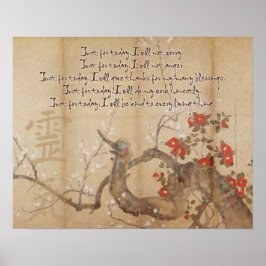 Just for today, I will not worry.
Just for today, I will not anger.
Just for today, I will give thanks for my many blessings.
Just for today, I will do my work honestly.
Just for today, I will be kind to every living thing.
靈
氣